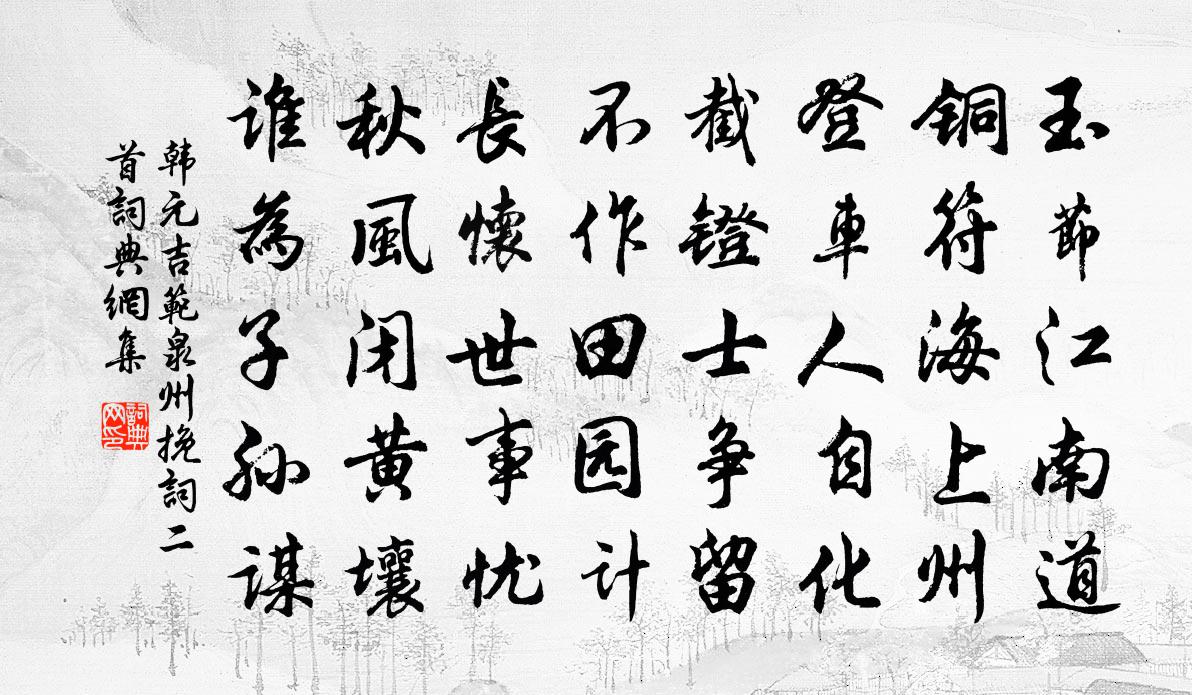 玉節江南道
铜符海上州
登車人自化
截鐙士争留
不作田园计
長懷世事忧
秋風闭黄壤
谁為子孙谋
韩元吉範泉州挽詞二
首詞典網集
詞典
网印